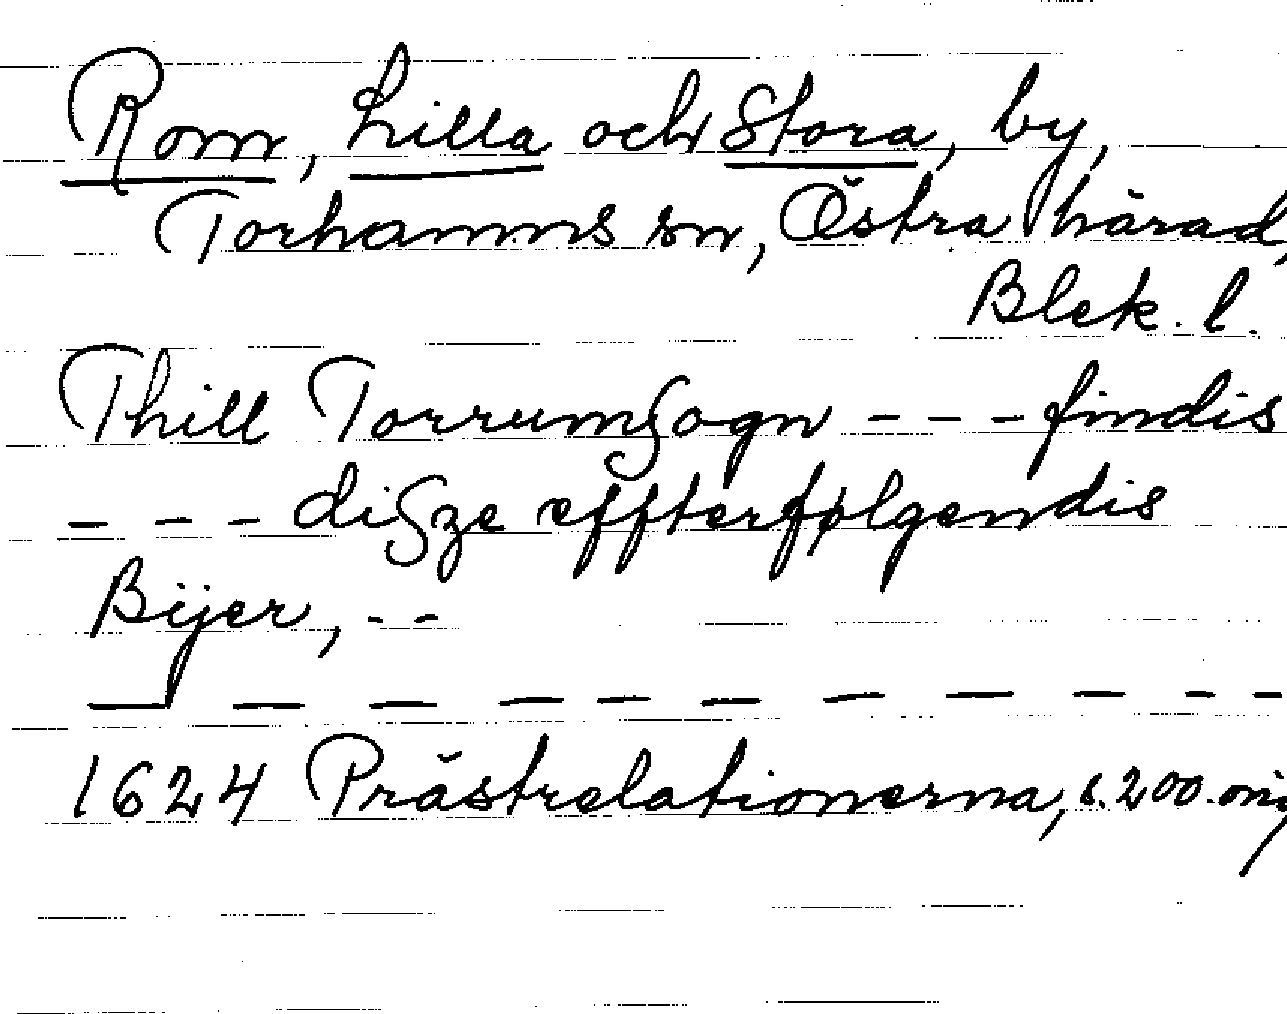 Rom, Lilla och Stora, by,
Torhamns sn, Östra härad,
Blek. l.
Thill Torrumsogn - - - findis
- - - disze effterfølgendis
Bijer, - -
— — — — — — — — — — —
1624 Prästrelationerna, s. 200. orig